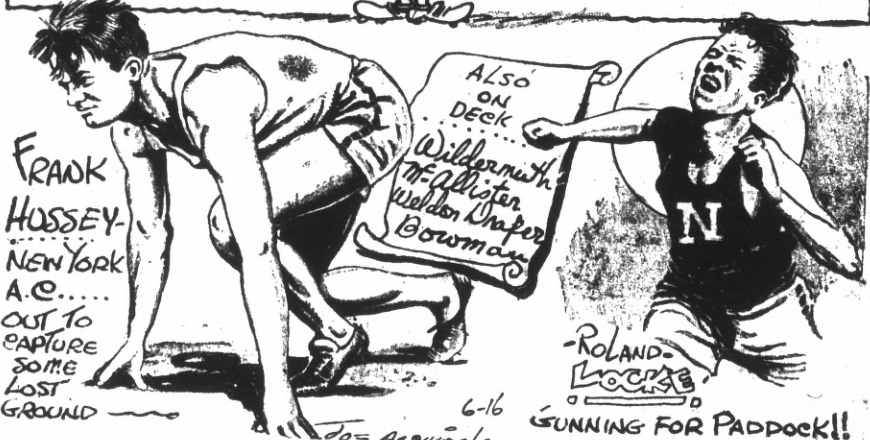 FRANK
HUSSEY-
NEW YORK
A.C.....
OUT TO
CAPTURE
SOME
LOST
GROUND
ALSO
ON
DECK
Wildermuth
McAllister
Weldon Draper
Bowman
N
-ROLAND-
LOCKE
GUNNING FOR PADDOCK!!
6-16
JOE